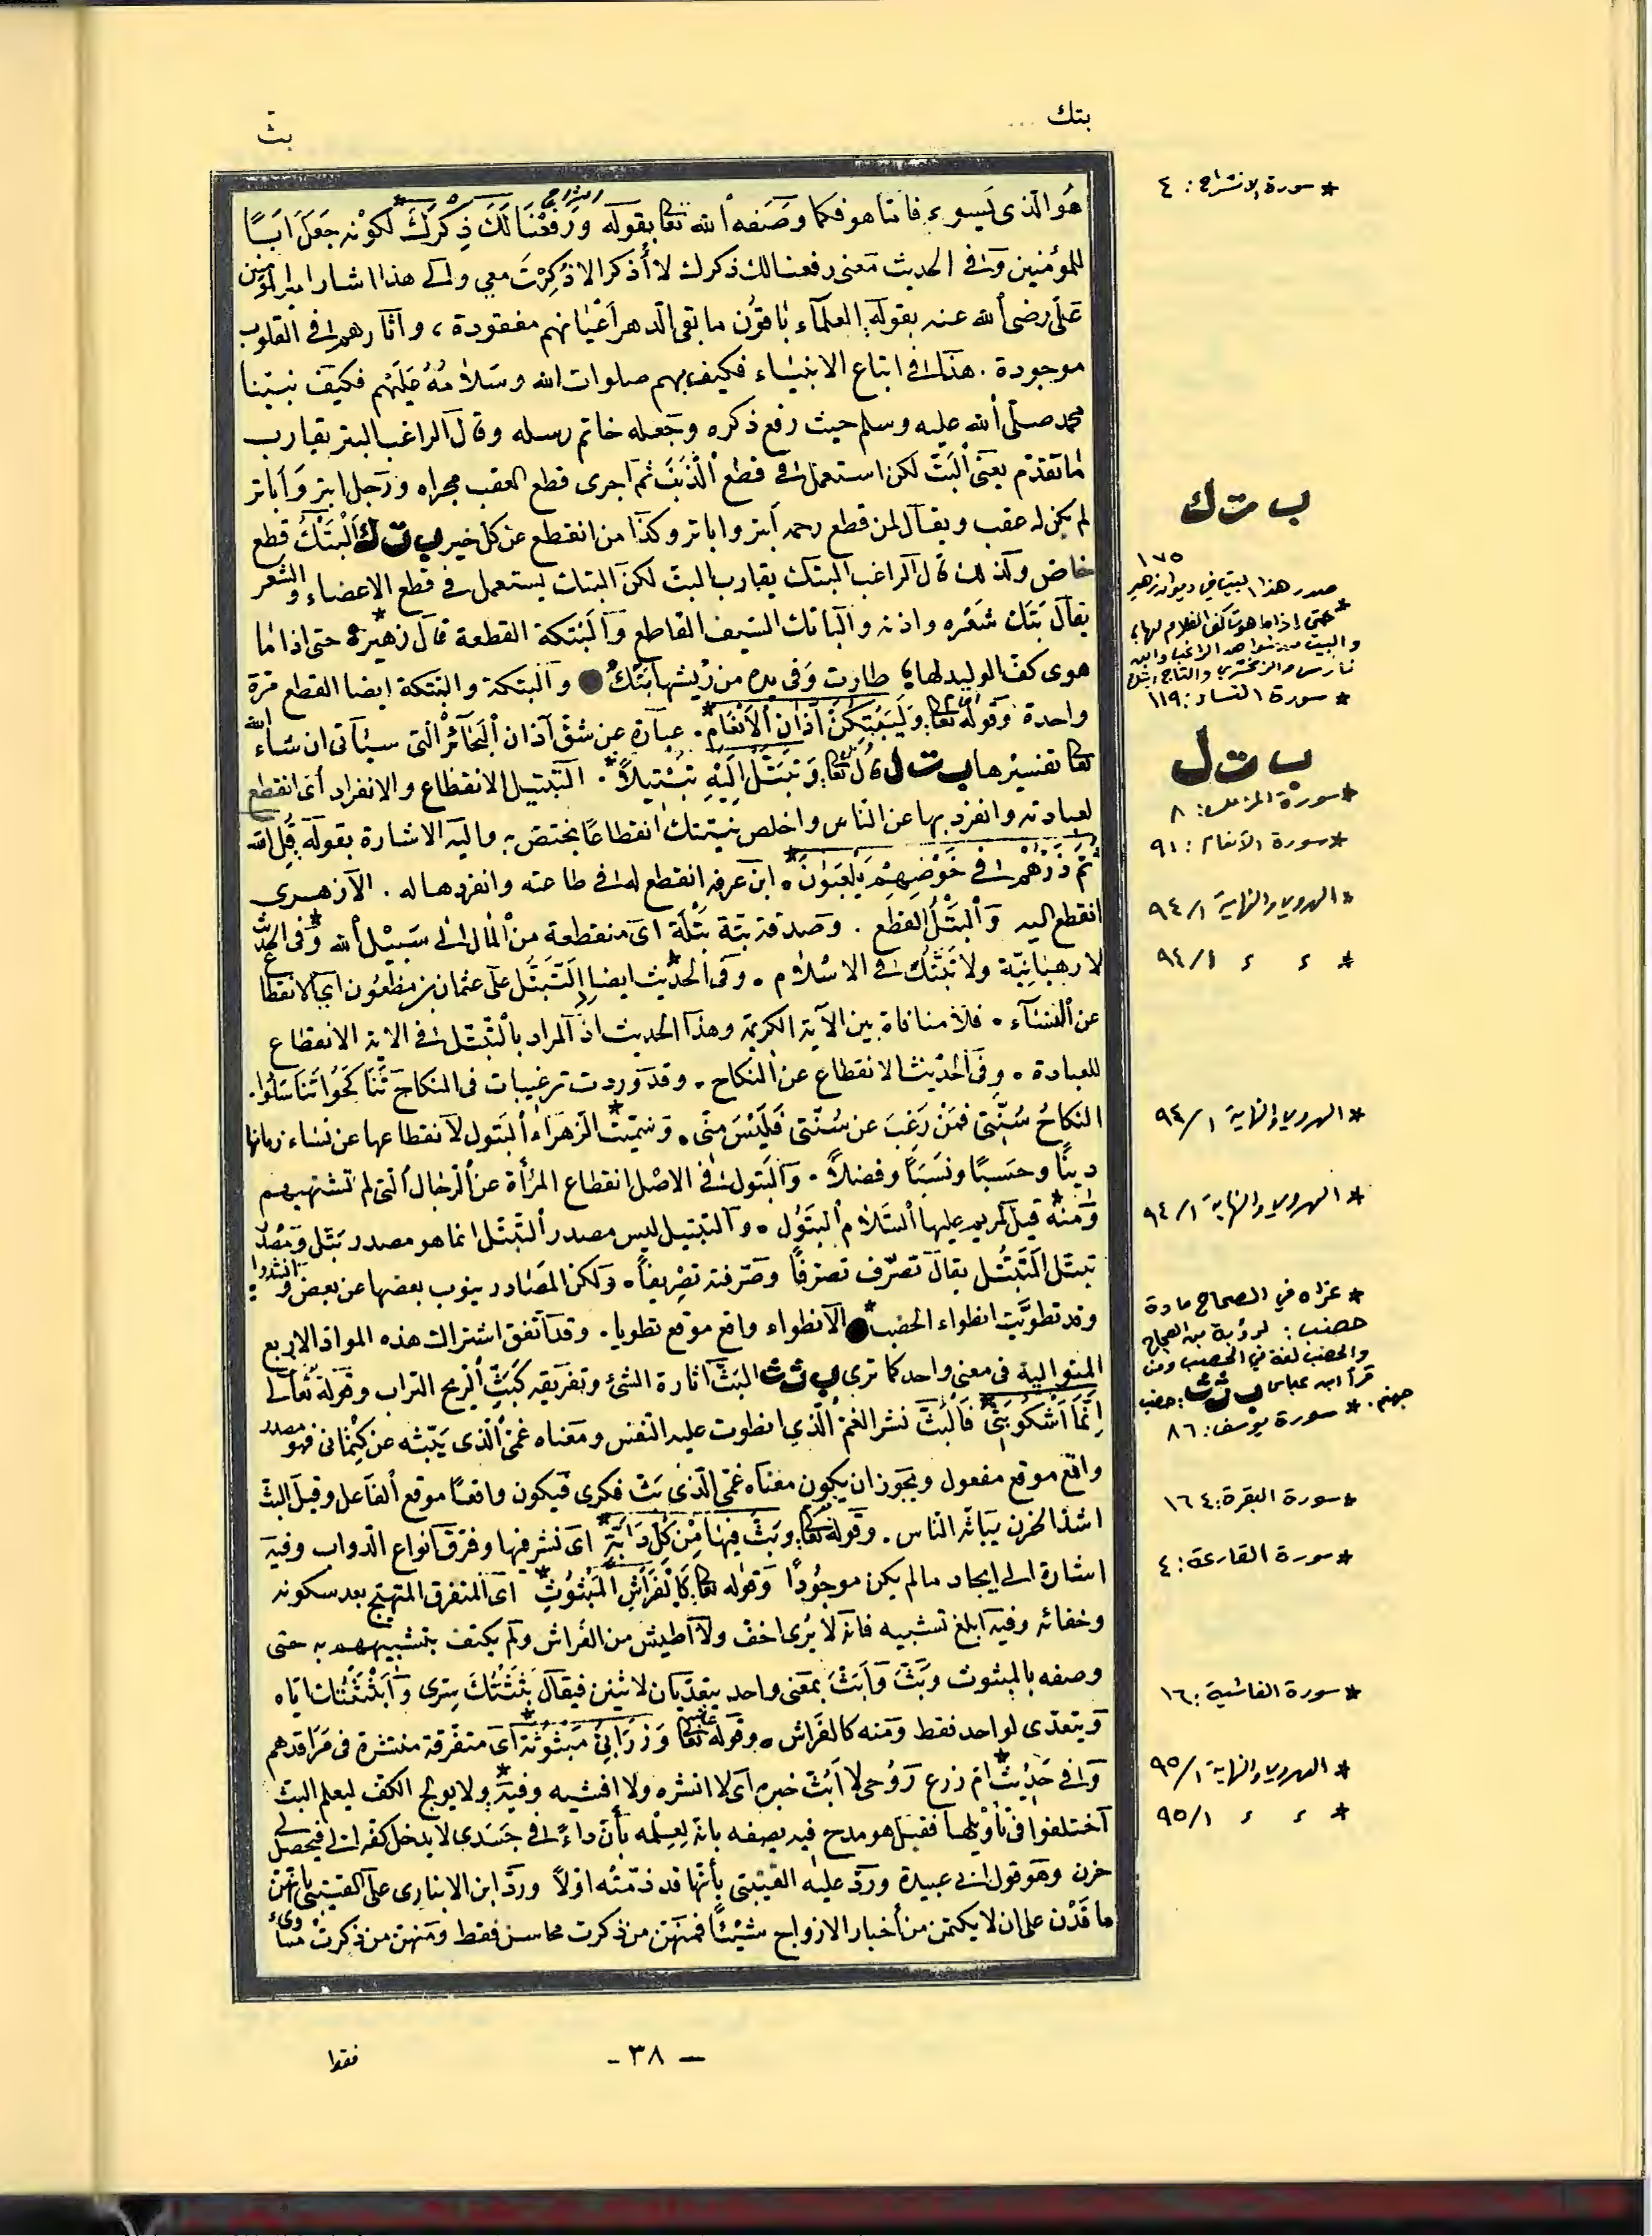 بتك ...
بث
هُوَ الَّذى يَسوء فامّا هو فكما وصَفه الله تعا بقوله وَرَفَعْنَا لَكَ ذِكْرَكَ * لكونه جَعَلَ اَبًا
للمؤمنين وفى الحديث معنى رفعنا لك ذكرك لا أُذكر الا ذُكِرْتَ معى والى هذا اشار امير المؤمنين
عَلى رضى الله عنه بقوله العلماء باقون ما بقى الدهر أعْيَانهم مفقودة ، وآثارهم فى القلوب
موجودة . هذا فى اتباع الانبياء فكيف بهم صلوات الله وسَلامُهُ عَلَيْهم فكيف نبيّنا
محمد صلى الله عليه وسلم حيث رفع ذكره وجعله خاتم رسله وقال الراغب البتر يقارب
ما تقدّم يعنى البَتّ لكن استعمل فى قطع الذَّنَب ثم اجرى قطع العقب مجراه ورَجل ابتر وَاُباتر
لم يكن له عقب ويقال لمن قطع رحمه أبتر واباتر وكذا من انقطع عن كل خير ب ت ك اَلْبَتْكُ قطع
خاص وكذلك قال الراغب البتك يقارب البت لكن البتك يستعمل فى قطع الاعضاء والشعر
يقال بَتَكَ شَعْره واذنه والباتك السَيف القاطع والبَتكة القطعة قال زهير * حتى اذا ما
هوى كفّ الوليد لها طارت وَفى يده من ريْشها بِتَكُ ● والبتكة والبَتكة ايضا القطع مَرة
واحدة وقوله تعا وَلَيُبَتِّكُنَّ آذَانَ الْاَنْعَامِ * . عبارة عن شق آذان البَحَائر التى سيأتى ان شاء الله
تعا تفسيرها ب ت ل قال تعا وَتَبَتَّلْ اِلَيْهِ تَبْتِيلًا * . التبتيل الانقطاع والانفراد أى انقطع
لعبادته وانفرد بها عن الناس واخلص نيّتك انقطاعًا يختصّ به واليه الاشارة بقوله قُلِ اللّه
ثُمَّ ذَرْهُمْ فى خَوْضِهِمْ يَلْعَبُونَ * . ابن عرفه انقطع له فى طاعته وانفرد هاله . الازهرى
انقطع اليه وَالْبَتْلُ القطع . وصدقة بتّة بَتْلَة اى منقطعة من المال الى سَبيْل الله * وفى الحديث
لا رهبانيّة ولا تَبتُّل فى الاسْلام . وفى الحديث ايضا التَّبَتُّل على عثمان بن مظعُون اى الانقطاع
عن النساء . فلا منافاة بين الآية الكريمة وهذا الحديث اذ المراد بالتّبتّل فى الاية الانقطاع
للعبادة . وفى الحديث الانقطاع عن النكاح . وقد وردت ترغيبات فى النكاح تَنَاكَحُوا تَنَاسَلُوا .
النكاحُ سُنّتى فمَنْ رَغِبَ عن سُنّتى فَلَيْسَ منّى . وسُمّيت * الزهراء البَتول لانقطاعها عن نساء زمانها
دينًا وحسَبًا ونسَبًا وفضلاً . والبَتول فى الاصل انقطاع المرأة عن الرجال التى لم تشتهيهم
وَمنْهُ * قيل لمريم عليها السّلام البَتوُل . والتبتيل ليس مصدر التّبتّل انما هو مصدر بَتّل ومَصْدَر
تبتّل التَّبَتُّل يقال تصَرّف تصرّفاً وصَرّفته تصْريفاً . ولكن المصَادر ينوب بعضها عن بعض وانشدوا :
وقد تطوَّيت انطواء الحضب * ● الانطواء واقع موقع تطويا . وقد اتفق اشتراك هذه المواد الاربع
المتوالية فى معنى واحد كما ترى ب ث ث البَثّ اثارة الشئ وتفريقه كَبَثّ الريح التراب وقوله تَعالى
اِنَّمَا اَشْكُو بَثّى * فَالْبَثّ نشر الغمّ الّذى انطوت عليه النفس ومعناه غمّى الّذى يَبثّه عن كِتْمانى فهو مصدر
واقع موقع مفعول ويجوز ان يكون معناه غمّى الّذى بَثّ فكرى فيكون واقعًا موقع الفاعل وقيل البثّ
اشدّ الحزن يباثه الناس . وقوله تعا وبَثَّ فِيهَا مِنْ كُلِّ دَابَّةٍ * اى نشر فيها وفرّق انواع الدواب وفيه
اشارة الى ايجاد ما لم يكن موجُودًا وقوله تعا كَالْفَرَاشِ الْمَبْثُوثِ * اى المتفرق المتهيّج بعد سكونه
وخفائه وفيه ابلغ تشبيه فانه لا يُرى اخفّ ولا اطيش من الفَراش ولم يكتف بتشبيههم به حتى
وصفه بالمبثوث وبَثَّ وَاَبَثَّ بمعنى واحد يتعدّيان لاثنين فيقال بَثَثْتُكَ سِرى وَأَبْثَثْتُكَ اياه
ويتعدّى لواحد فقط ومنه كالفَراش . وقوله تعالى وَزَرَابِىُّ مَبْثُوثَة * اى متفرّقة منتشرة فى مَراقدهم
وفى حَدِيث * ام زرع زَوْجى لا اَبُثّ خبره اى لا انشره ولا افشيه وفيه * ولا يولج الكفّ ليعلم البثّ
اختلفوا فى تأويلها فقيل هو مدح فيه يصفه بانه لِعِلْمه بأن داءً فى جَسَدى لا يدخل كفه الى فيحصل لى
حزن وهو قول ابى عبيدة وردّ عليه القتيبى بأنّها قد ذمّتْه اوّلاً وردّ ابن الانبارى على القتيبى بانّهن
تعاقَدْن على ان لا يكتمن من أخبار الازواج شيْئًا فمنهَن من ذكرت محاسن فقط ومنهنّ من ذكرت مساوىء
* سورة الانشراح : ٤
ب ت ك
١٧٥
صدر هذا البيت في ديوان زهير
* حتى إذا ما هوت كف الغلام لها ؛
والبيت من شواهد الراغب وابن
فارس والزمخشري والتاج ايضا
* سورة النساء : ١١٩
ب ت ل
* سورة المزمل : ٨
* سورة الأنعام : ٩١
* الهروي والنهاية ٩٤/١
* ء ء ٩٤/١
* الهروي والنهاية ٩٤/١
* الهروي والنهاية ٩٤/١
* عزاه في الصحاح مادة
حضب : لرؤبة بن العجاج
والحضب لغة في الحصب ومن
قرأ ابن عباس ب ث ث : حضب
جهنم . * سورة يوسف : ٨٦
* سورة البقرة : ١٦٤
* سورة القارعة : ٤
* سورة الغاشية : ١٦
* الهروي والنهاية ٩٥/١
* ء ء ٩٥/١
- ٣٨ -
فقط